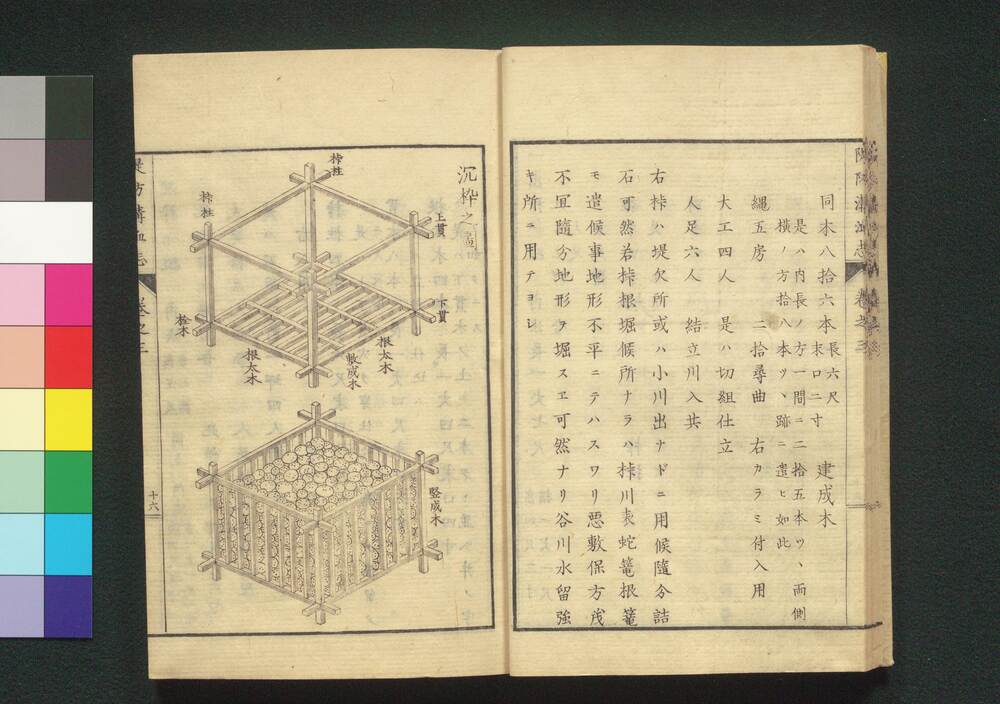 同木八拾六本 長六尺 末口二寸 建成木
是ハ内長ノ方一間ニ二拾五本ツヽ両側
横ノ方拾八本ツヽ跡ニ遣ヒ如此
縄五房 二拾尋曲 右カラミ付入用
大工四人 是ハ切組仕立
人足六人 結立川入共
右枠ハ堤欠所或ハ小川出ナドニ用候隨分詰
石可然若枠根堀候所ナラハ枠川表蛇篭根篭
モ遣候事地形不平ニテハスワリ悪敷保方浅
不宜隨分地形ヲ堀スエ可然ナリ谷川水留強
キ所ニ用テヨシ
卷之三
沉枠之圖
枠柱
枠柱
上貫
下貫
栓木
根太木
敷成木
根太木
竪成木
卷之三
十六